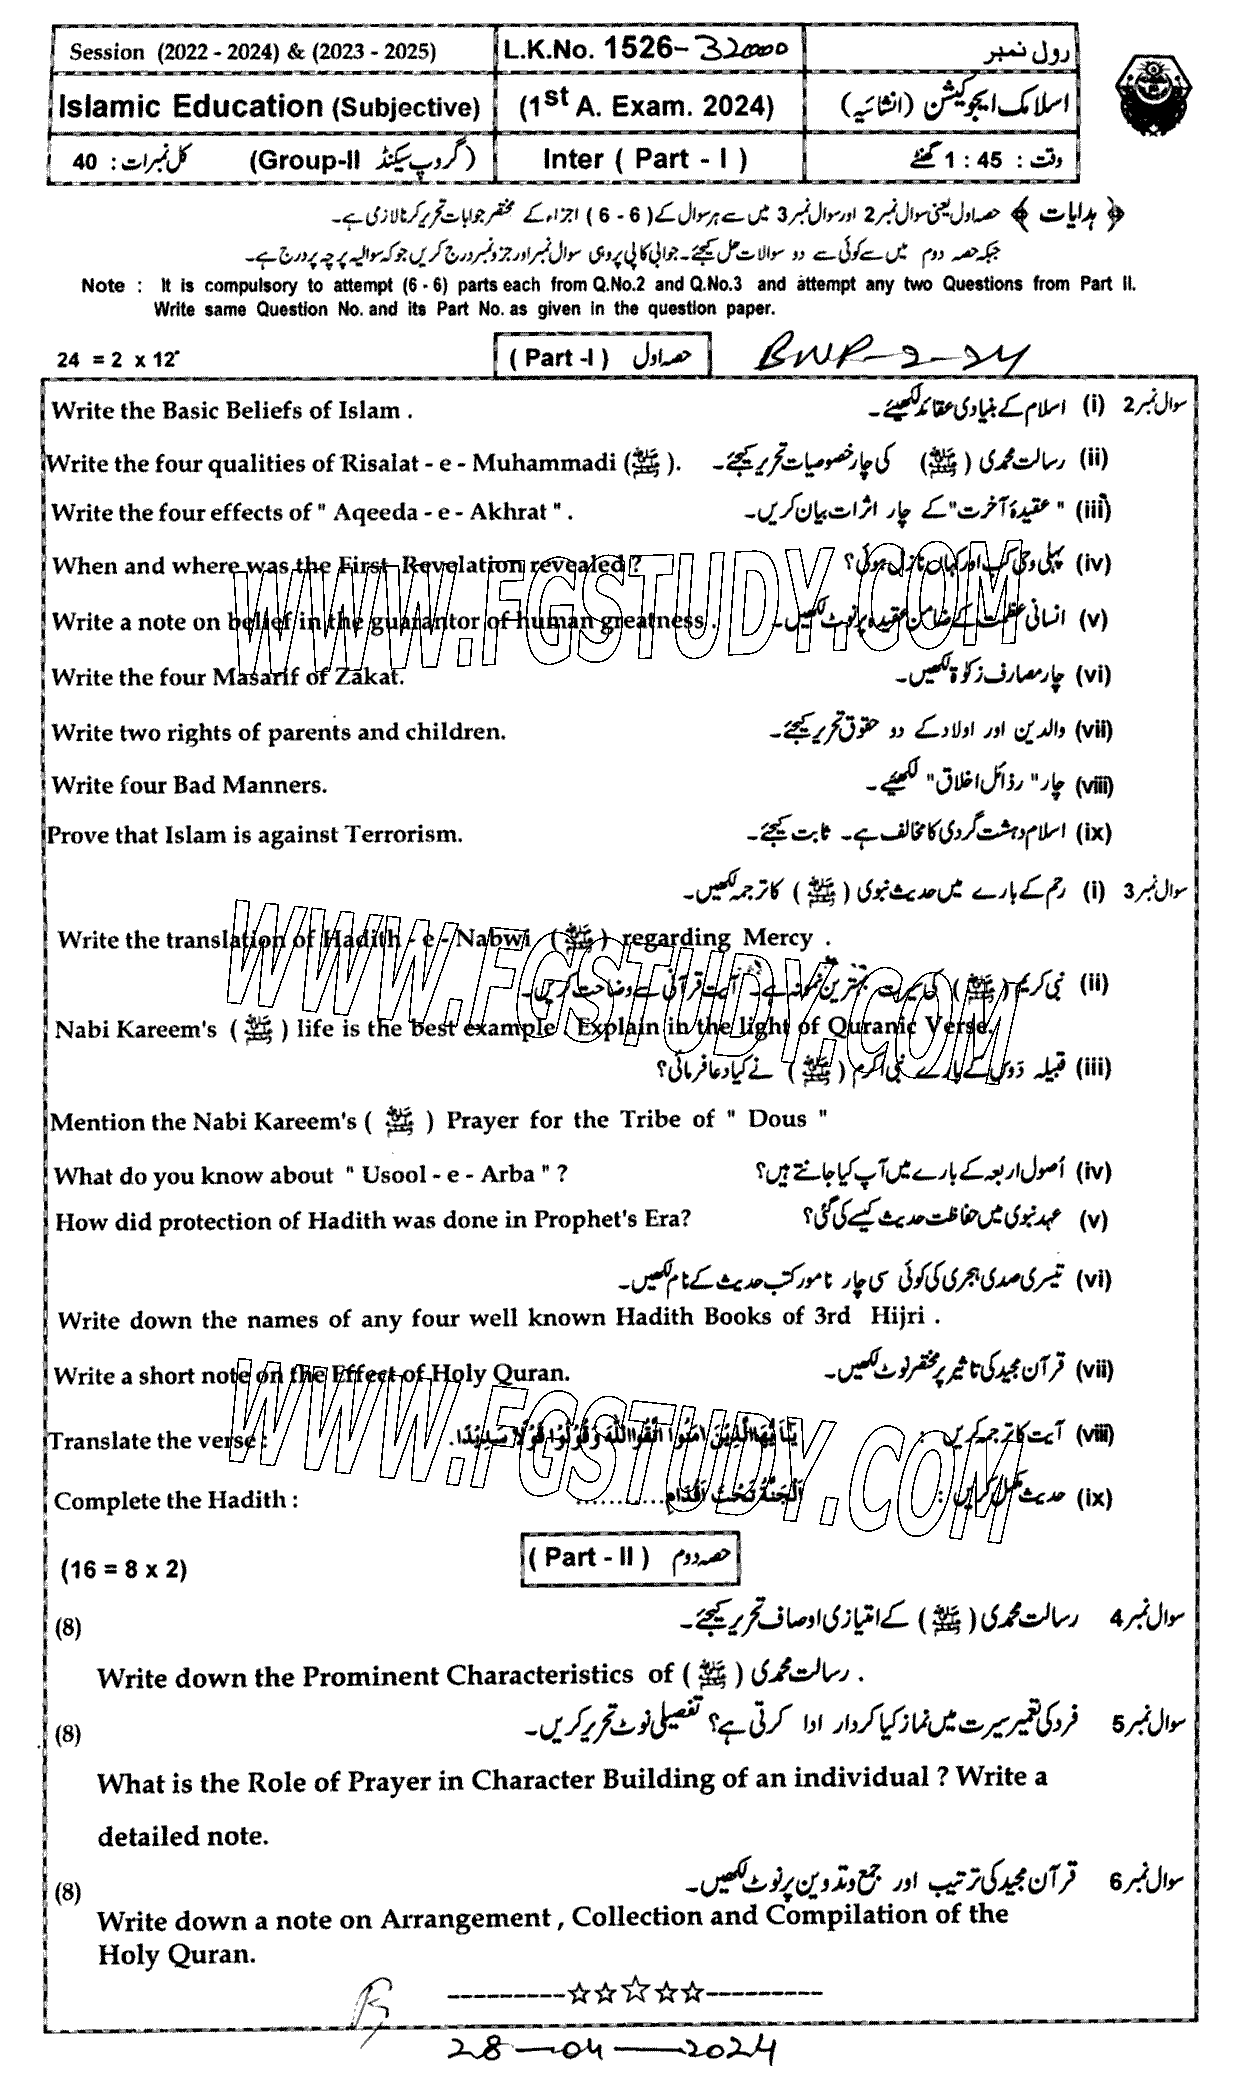 Session (2022 - 2024) & (2023 - 2025) L.K.No. 1526-32000 رول نمبر
Islamic Education (Subjective) (1st A. Exam. 2024) اسلامک ایجوکیشن (انشائیہ)
کل نمبرات : 40 (Group-II گروپ سیکنڈ) Inter ( Part - I ) وقت : 1 : 45 گھنٹے
﴿ ہدایات ﴾ حصہ اول یعنی سوال نمبر 2 اور سوال نمبر 3 میں سے ہر سوال کے ( 6 - 6 ) اجزاء کے مختصر جوابات تحریر کرنا لازمی ہے۔
جبکہ حصہ دوم میں سے کوئی سے دو سوالات حل کیجئے۔ جوابی کاپی پر وہی سوال نمبر اور جزو نمبر درج کریں جو کہ سوالیہ پرچہ پر درج ہے۔
Note : It is compulsory to attempt (6 - 6) parts each from Q.No.2 and Q.No.3 and attempt any two Questions from Part II.
Write same Question No. and its Part No. as given in the question paper.
24 = 2 x 12 ( Part -I ) حصہ اول BWP-2-24
Write the Basic Beliefs of Islam . سوال نمبر 2 (i) اسلام کے بنیادی عقائد لکھیئے۔
Write the four qualities of Risalat - e - Muhammadi (ﷺ). (ii) رسالت محمدی (ﷺ) کی چار خصوصیات تحریر کیجئے۔
Write the four effects of " Aqeeda - e - Akhrat " . (iii) "عقیدۂ آخرت" کے چار اثرات بیان کریں۔
When and where was the First Revelation revealed ? (iv) پہلی وحی کب اور کہاں نازل ہوئی؟
Write a note on belief in the guarantor of human greatness . (v) انسانی عظمت کے ضامن عقیدہ پر نوٹ لکھیں۔
Write the four Masarif of Zakat. (vi) چار مصارف زکوٰۃ لکھیں۔
Write two rights of parents and children. (vii) والدین اور اولاد کے دو حقوق تحریر کیجئے۔
Write four Bad Manners. (viii) چار "رذائل اخلاق" لکھیئے۔
Prove that Islam is against Terrorism. (ix) اسلام دہشت گردی کا مخالف ہے۔ ثابت کیجئے۔
سوال نمبر 3 (i) رحم کے بارے میں حدیث نبوی (ﷺ) کا ترجمہ لکھیں۔
Write the translation of Hadith - e - Nabwi (ﷺ) regarding Mercy .
(ii) نبی کریم (ﷺ) کی سیرت بہترین نمونہ ہے۔ آیت قرآنی سے وضاحت کریں۔
Nabi Kareem's (ﷺ) life is the best example . Explain in the light of Quranic Verse.
(iii) قبیلہ دوس کے بارے نبی اکرم (ﷺ) نے کیا دعا فرمائی؟
Mention the Nabi Kareem's (ﷺ) Prayer for the Tribe of " Dous "
What do you know about " Usool - e - Arba " ? (iv) اُصول اربعہ کے بارے میں آپ کیا جانتے ہیں؟
How did protection of Hadith was done in Prophet's Era? (v) عہد نبوی میں حفاظت حدیث کیسے کی گئی؟
(vi) تیسری صدی ہجری کی کوئی سی چار نامور کتب حدیث کے نام لکھیں۔
Write down the names of any four well known Hadith Books of 3rd Hijri .
Write a short note on the Effect of Holy Quran. (vii) قرآن مجید کی تاثیر پر مختصر نوٹ لکھیں۔
Translate the verse : يٰٓاَيُّهَا الَّذِيْنَ اٰمَنُوا اتَّقُوا اللّٰهَ وَقُوْلُوْا قَوْلًا سَدِيْدًا. (viii) آیت کا ترجمہ کریں :
Complete the Hadith : اَلْجَنَّةُ تَحْتَ اَقْدَامِ............ (ix) حدیث مکمل کریں :
(16 = 8 x 2) ( Part - II ) حصہ دوم
(8) سوال نمبر 4 رسالت محمدی (ﷺ) کے امتیازی اوصاف تحریر کیجئے۔
Write down the Prominent Characteristics of (ﷺ) رسالت محمدی .
(8) سوال نمبر 5 فرد کی تعمیر سیرت میں نماز کیا کردار ادا کرتی ہے؟ تفصیلی نوٹ تحریر کریں۔
What is the Role of Prayer in Character Building of an individual ? Write a
detailed note.
(8) سوال نمبر 6 قرآن مجید کی ترتیب اور جمع و تدوین پر نوٹ لکھیں۔
Write down a note on Arrangement , Collection and Compilation of the
Holy Quran.
28-04-2024
WWW.FGSTUDY.COM
WWW.FGSTUDY.COM
WWW.FGSTUDY.COM